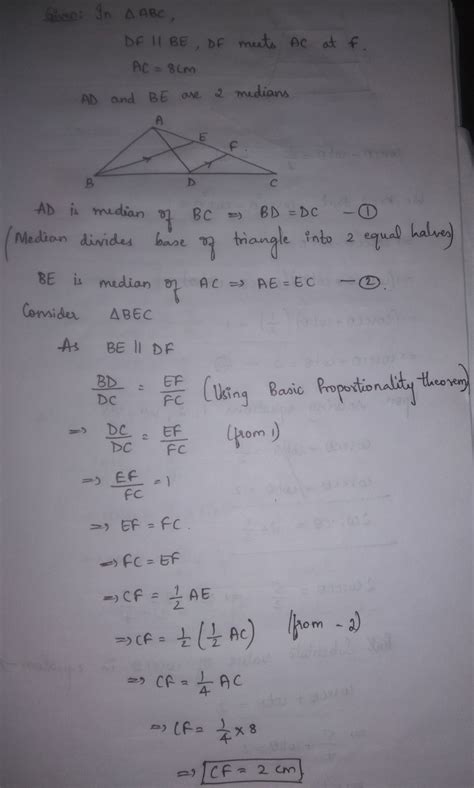 Given: In △ABC,
DF || BE, DF meets AC at F.
AC = 8cm
AD and BE are 2 medians
A
E
F
B
D
C
AD is median of BC ⇒ BD = DC — ①
(Median divides base of triangle into 2 equal halves)
BE is median of AC ⇒ AE = EC — ②.
Consider △BEC
As BE || DF
BD/DC = EF/FC (Using Basic Proportionality theorem)
⇒ DC/DC = EF/FC (from 1)
⇒ EF/FC = 1
⇒ EF = FC.
⇒ FC = EF
⇒ CF = 1/2 AE
⇒ CF = 1/2 (1/2 AC) (from - 2)
⇒ CF = 1/4 AC
⇒ CF = 1/4 × 8
⇒ CF = 2 cm